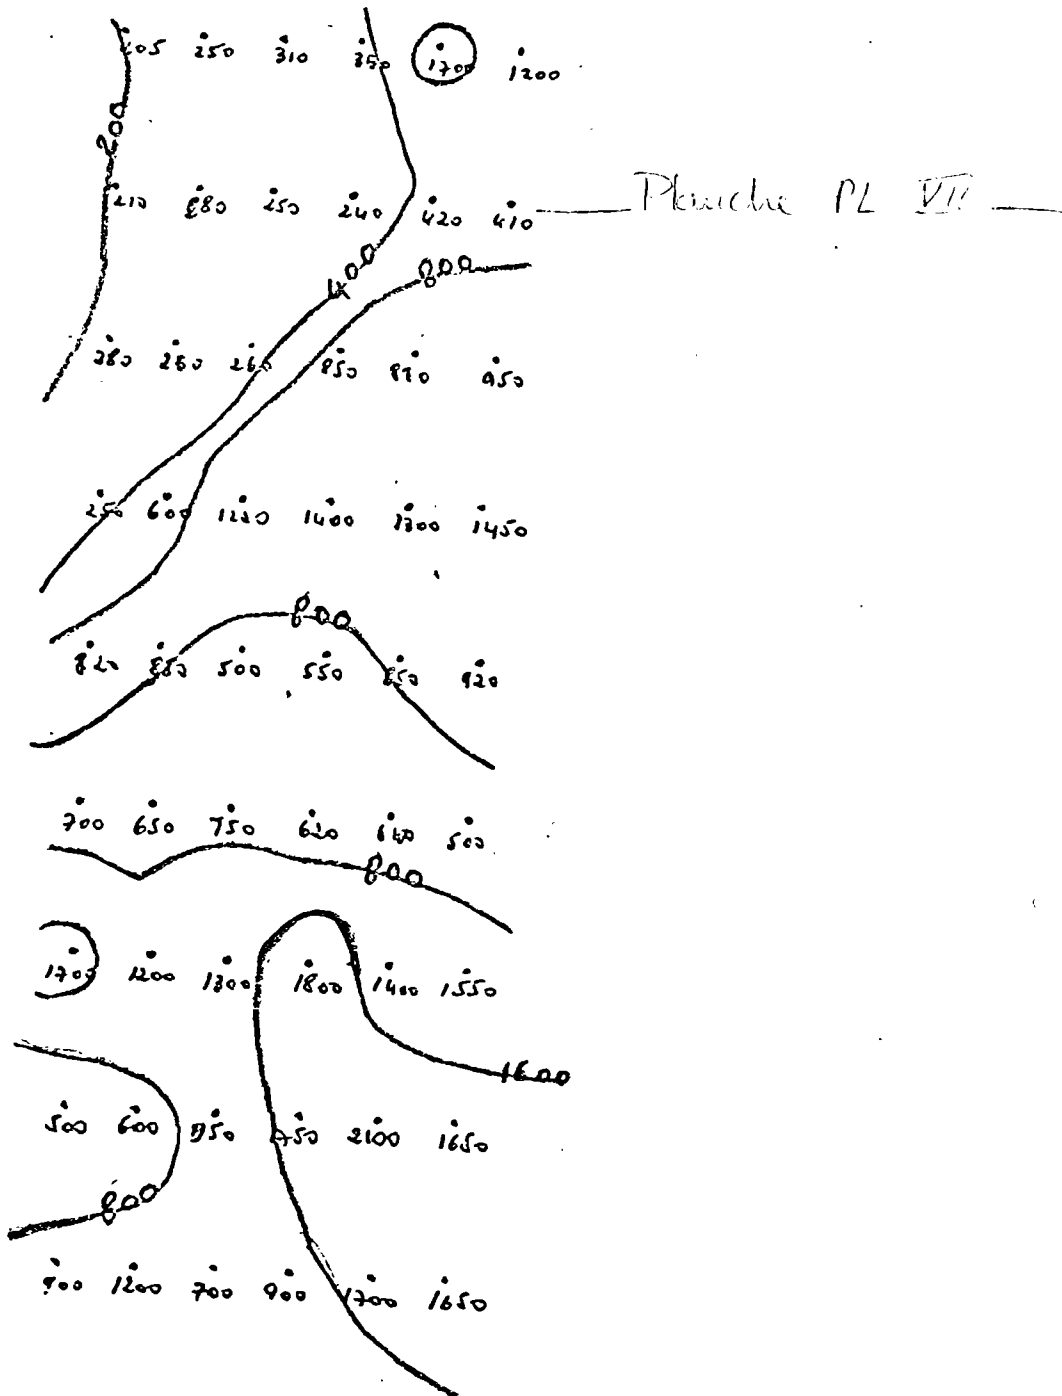 205 250 310 350 1700 1200
200
210 280 250 240 420 410
Planche PL VII
400 800
280 250 260 850 820 950
250 600 1220 1400 1300 1450
800
820 850 500 550 850 920
700 650 750 620 640 500
800
1700 1200 1300 1800 1400 1550
1600
500 600 950 750 2100 1650
800
900 1200 700 900 1700 1650